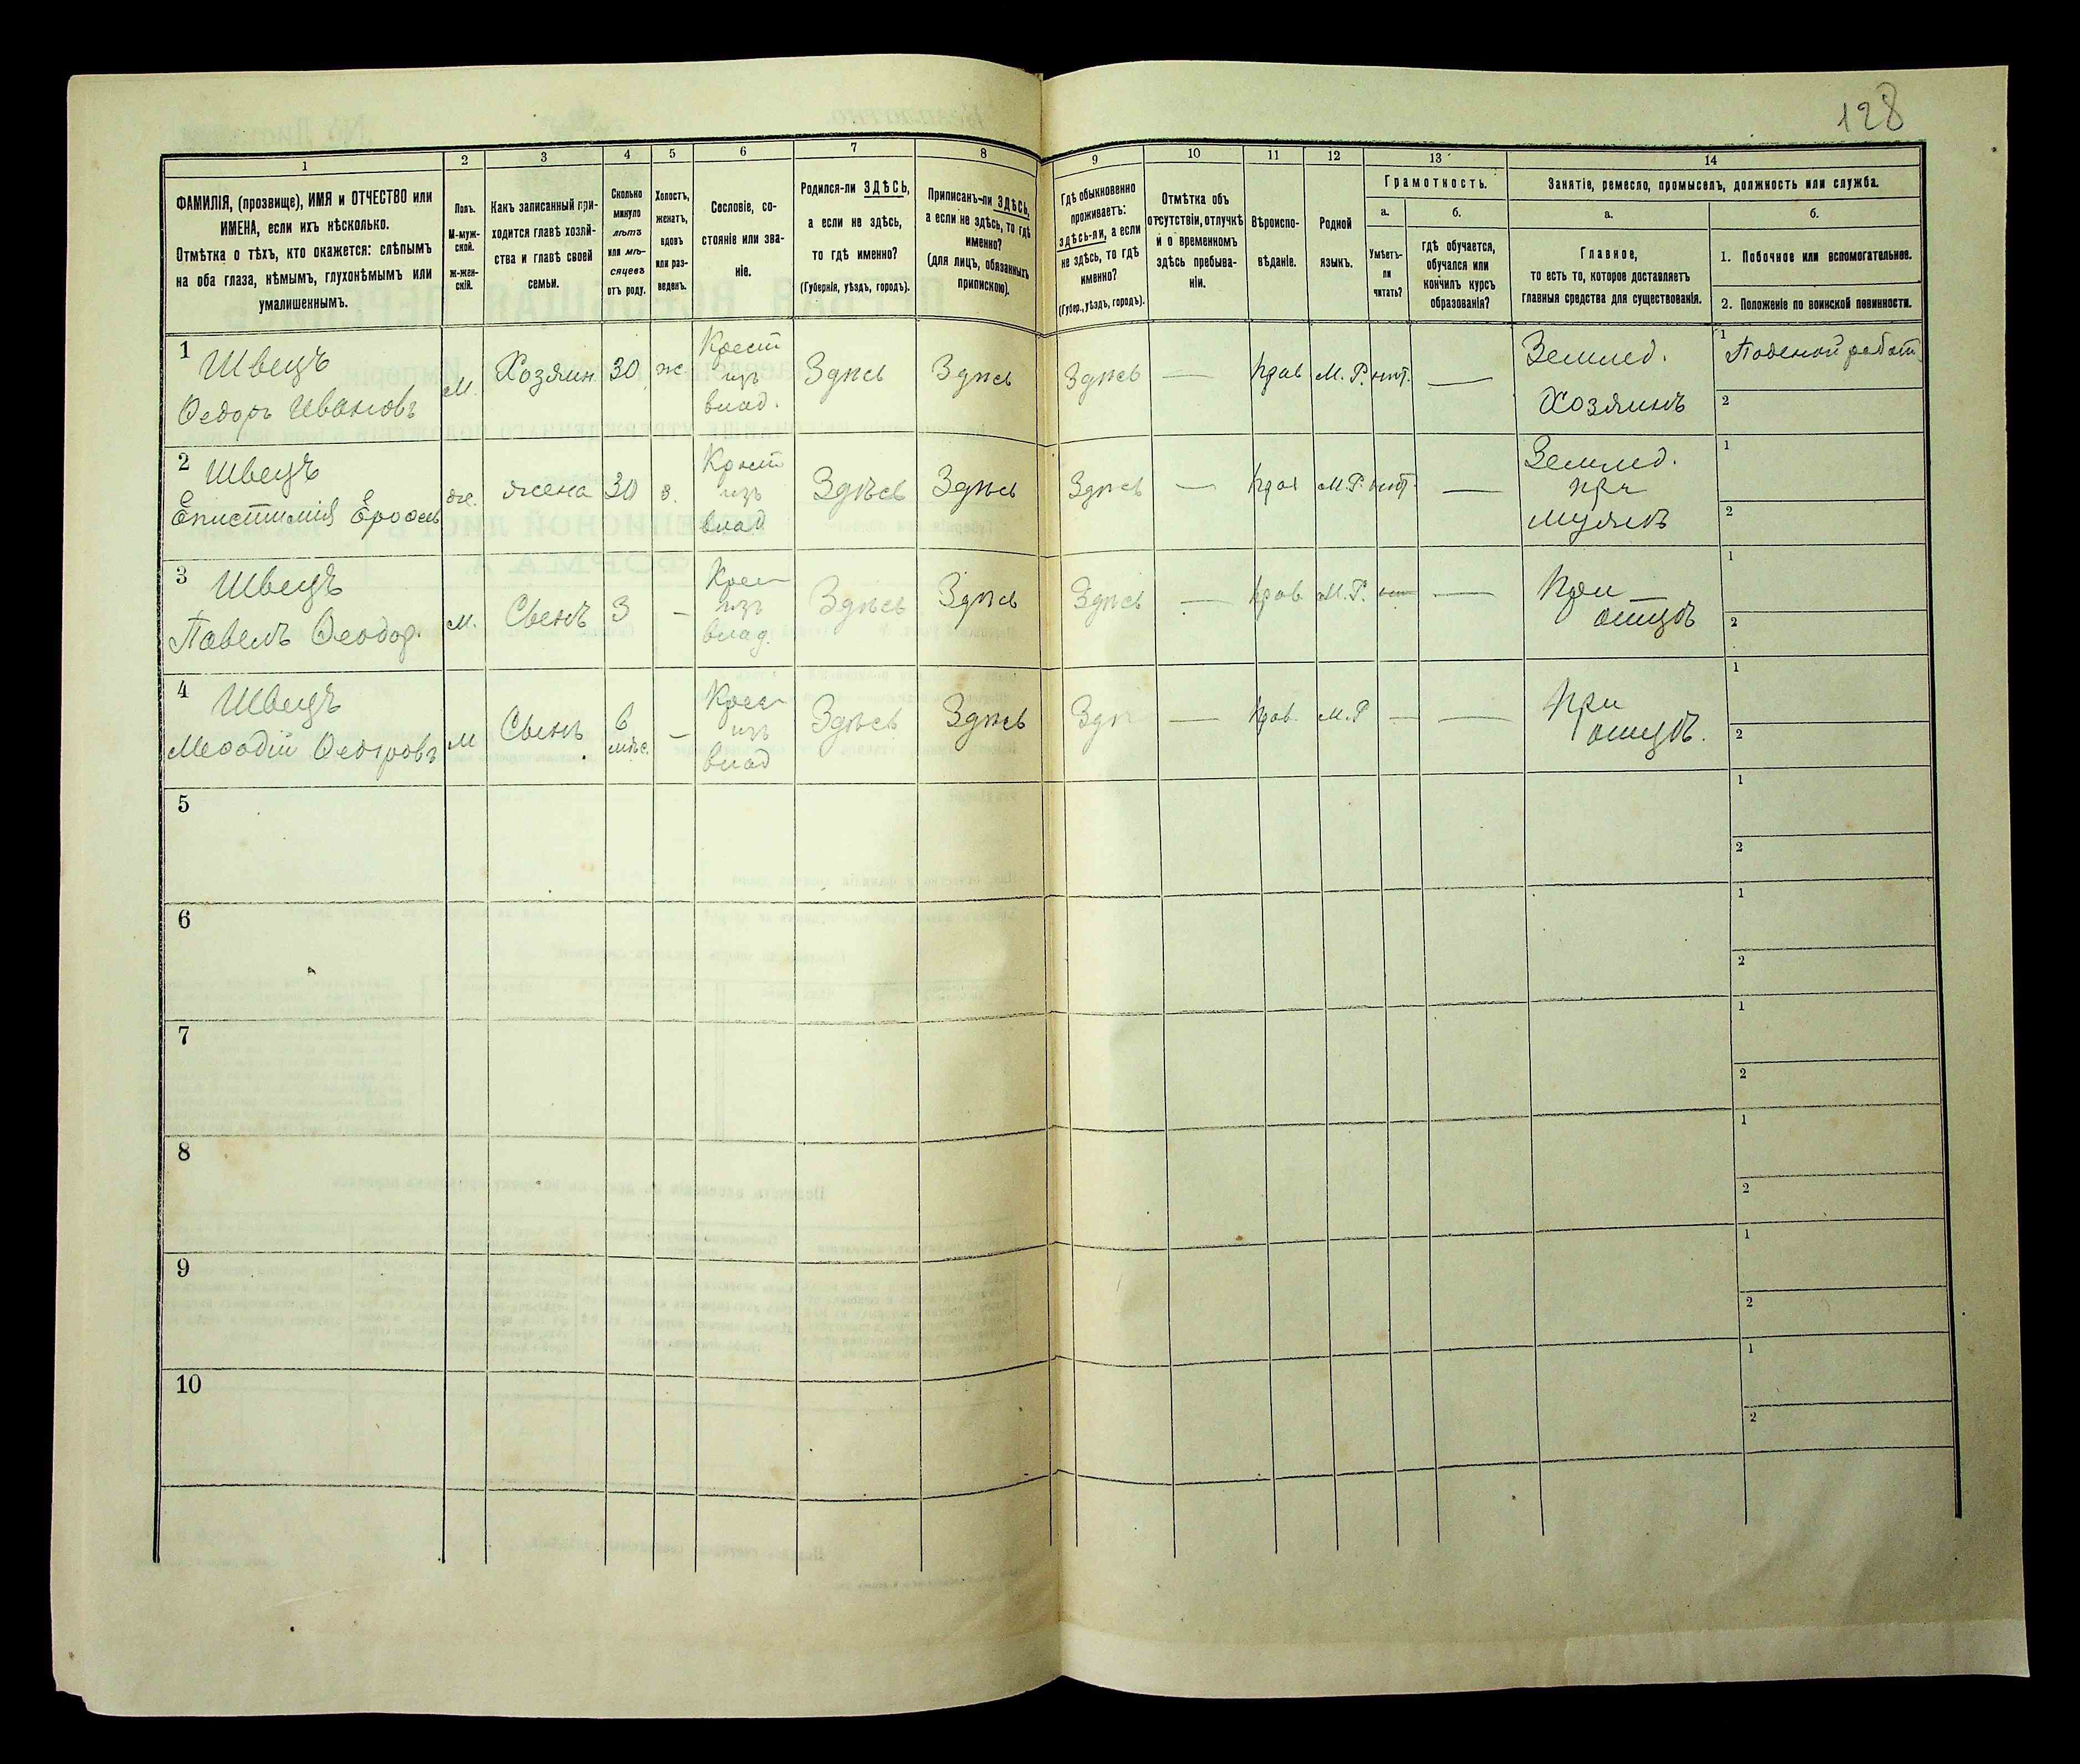 128
1
2
3
4
5
6
7
8
9
10
11
12
13
14
ФАМИЛІЯ, (прозвище), ИМЯ и ОТЧЕСТВО или
ИМЕНА, если ихъ нѣсколько.
Отмѣтка о тѣхъ, кто окажется: слѣпымъ
на оба глаза, нѣмымъ, глухонѣмымъ или
умалишеннымъ.
Полъ.
М-муж-
ской.
ж-жен-
скій.
Какъ записанный при-
ходится главѣ хозяй-
ства и главѣ своей
семьи.
Сколько
минуло
лѣтъ
или мѣ-
сяцевъ
отъ роду.
Холостъ,
женатъ,
вдовъ
или раз-
веденъ.
Сословіе, со-
стояніе или зва-
ніе.
Родился-ли ЗДѢСЬ,
а если не здѣсь,
то гдѣ именно?
(Губернія, уѣздъ, городъ).
Приписанъ-ли ЗДѢСЬ,
а если не здѣсь, то гдѣ
именно?
(для лицъ, обязанныхъ
припискою).
Гдѣ обыкновенно
проживаетъ:
здѣсь-ли, а если
не здѣсь, то гдѣ
именно?
(Губер., уѣздъ, городъ).
Отмѣтка объ
отсутствіи, отлучкѣ
и о временномъ
здѣсь пребыва-
ніи.
Вѣроиспо-
вѣданіе.
Родной
языкъ.
Грамотность.
а.
Умѣетъ-
ли
читать?
б.
гдѣ обучается,
обучался или
кончилъ курсъ
образованія?
Занятіе, ремесло, промыселъ, должность или служба.
а.
Главное,
то есть то, которое доставляетъ
главныя средства для существованія.
б.
1. Побочное или вспомогательное.
2. Положеніе по воинской повинности.
1 Швецъ
Ѳедоръ Ивановъ
М.
Хозяин
30
ж.
Крест
изъ
влад.
Здѣсь
Здѣсь
Здѣсь
—
Прав
М. Р.
нѣт.
—
Землед.
Хозяинъ
1 Поденой работ
2
2 Швецъ
Епистимія
же.
жена
30
з.
Крест
изъ
влад
Здѣсь
Здѣсь
Здѣсь
—
Прав
М. Р.
нѣт.
—
Землед.
при
мужѣ
1
2
3 Швецъ
Павелъ Ѳеодор.
м.
Сынъ
3
—
Крес
изъ
влад.
Здѣсь
Здѣсь
Здѣсь
—
Прав
М. Р.
—
При
отцѣ
1
2
4 Швецъ
Меѳодій Ѳедоровъ
м
Сынъ
6
мѣс.
—
Крес
изъ
влад
Здѣсь
Здѣсь
Здѣ
—
Прав.
М. Р
—
—
При
отцѣ.
1
2
5
1
2
6
1
2
7
1
2
8
1
2
9
1
2
10
1
2